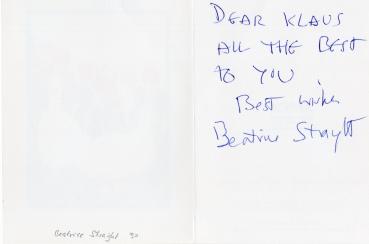 DEAR KLAUS
ALL THE BEST
to YOU,
Best wishes
Beatrice Straight
Beatrice Straight 90